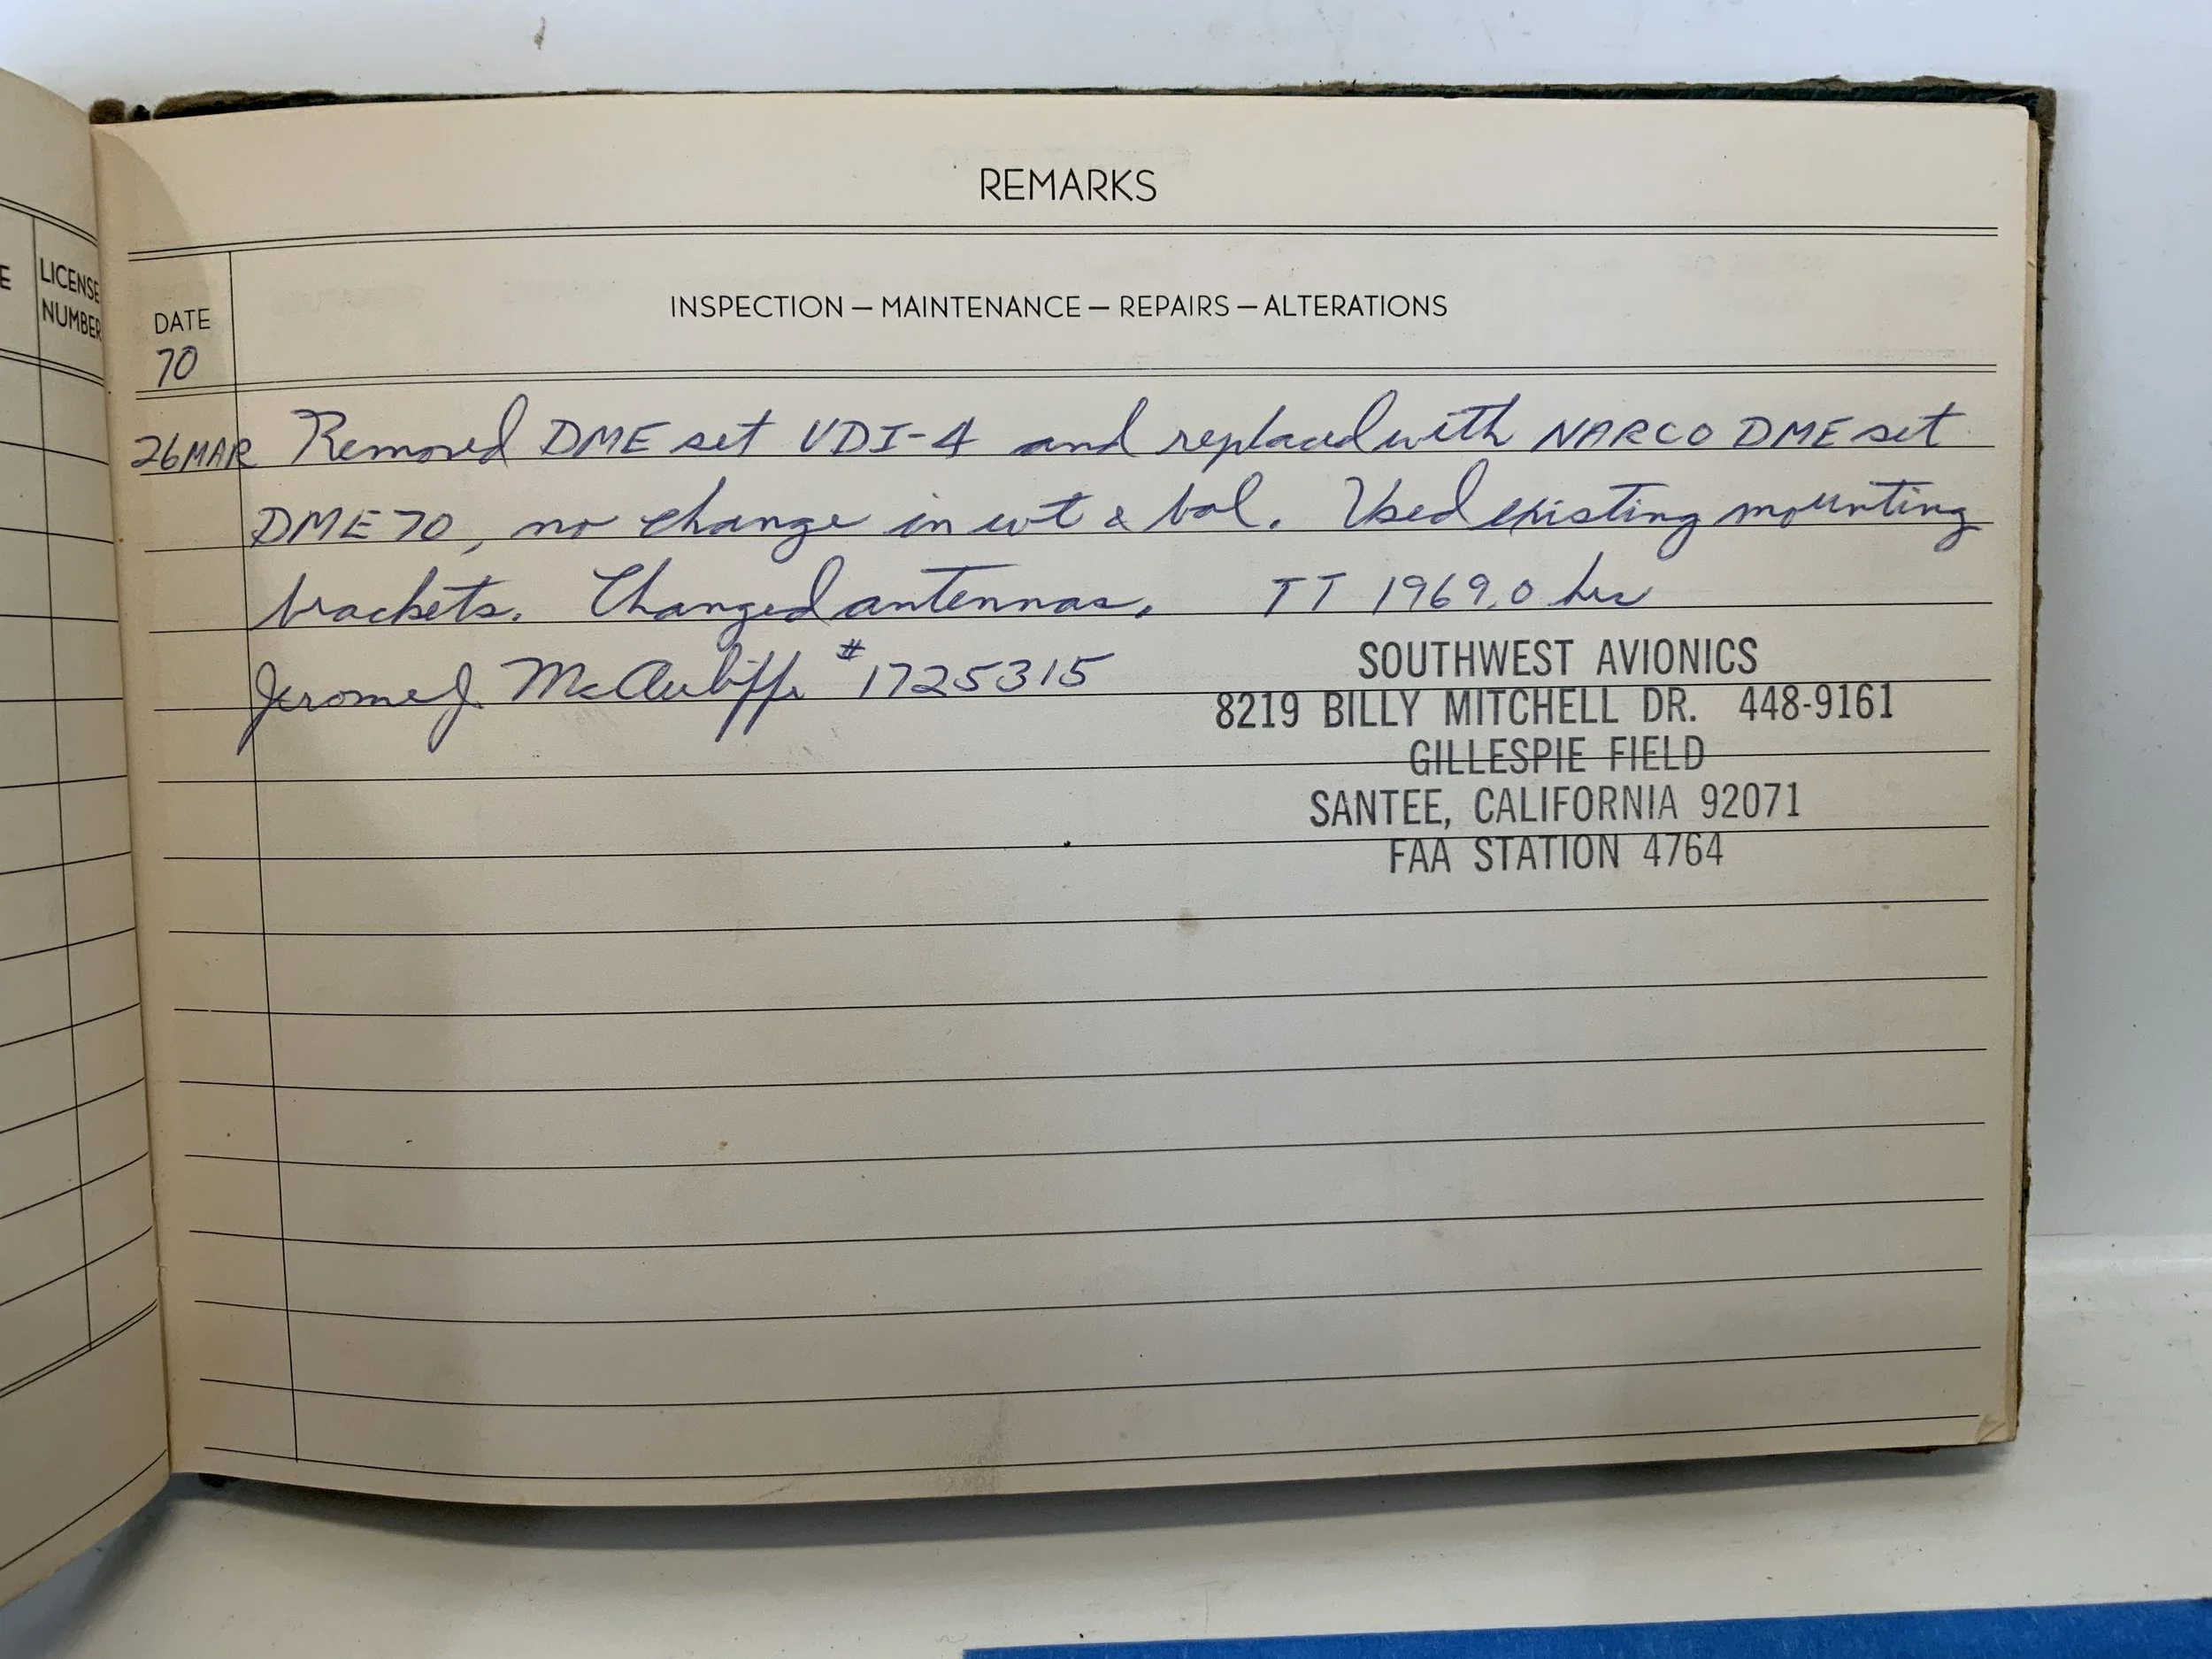 E
LICENSE
NUMBER
REMARKS
DATE
INSPECTION — MAINTENANCE — REPAIRS — ALTERATIONS
70
26MAR Removed DME set VDI-4 and replaced with NARCO DME set
DME 70, no change in wt & bal. Used existing mounting
brackets. Changed antennas. TT 1969.0 hrs
Jerome J. McAuliffe #1725315
SOUTHWEST AVIONICS
8219 BILLY MITCHELL DR. 448-9161
GILLESPIE FIELD
SANTEE, CALIFORNIA 92071
FAA STATION 4764